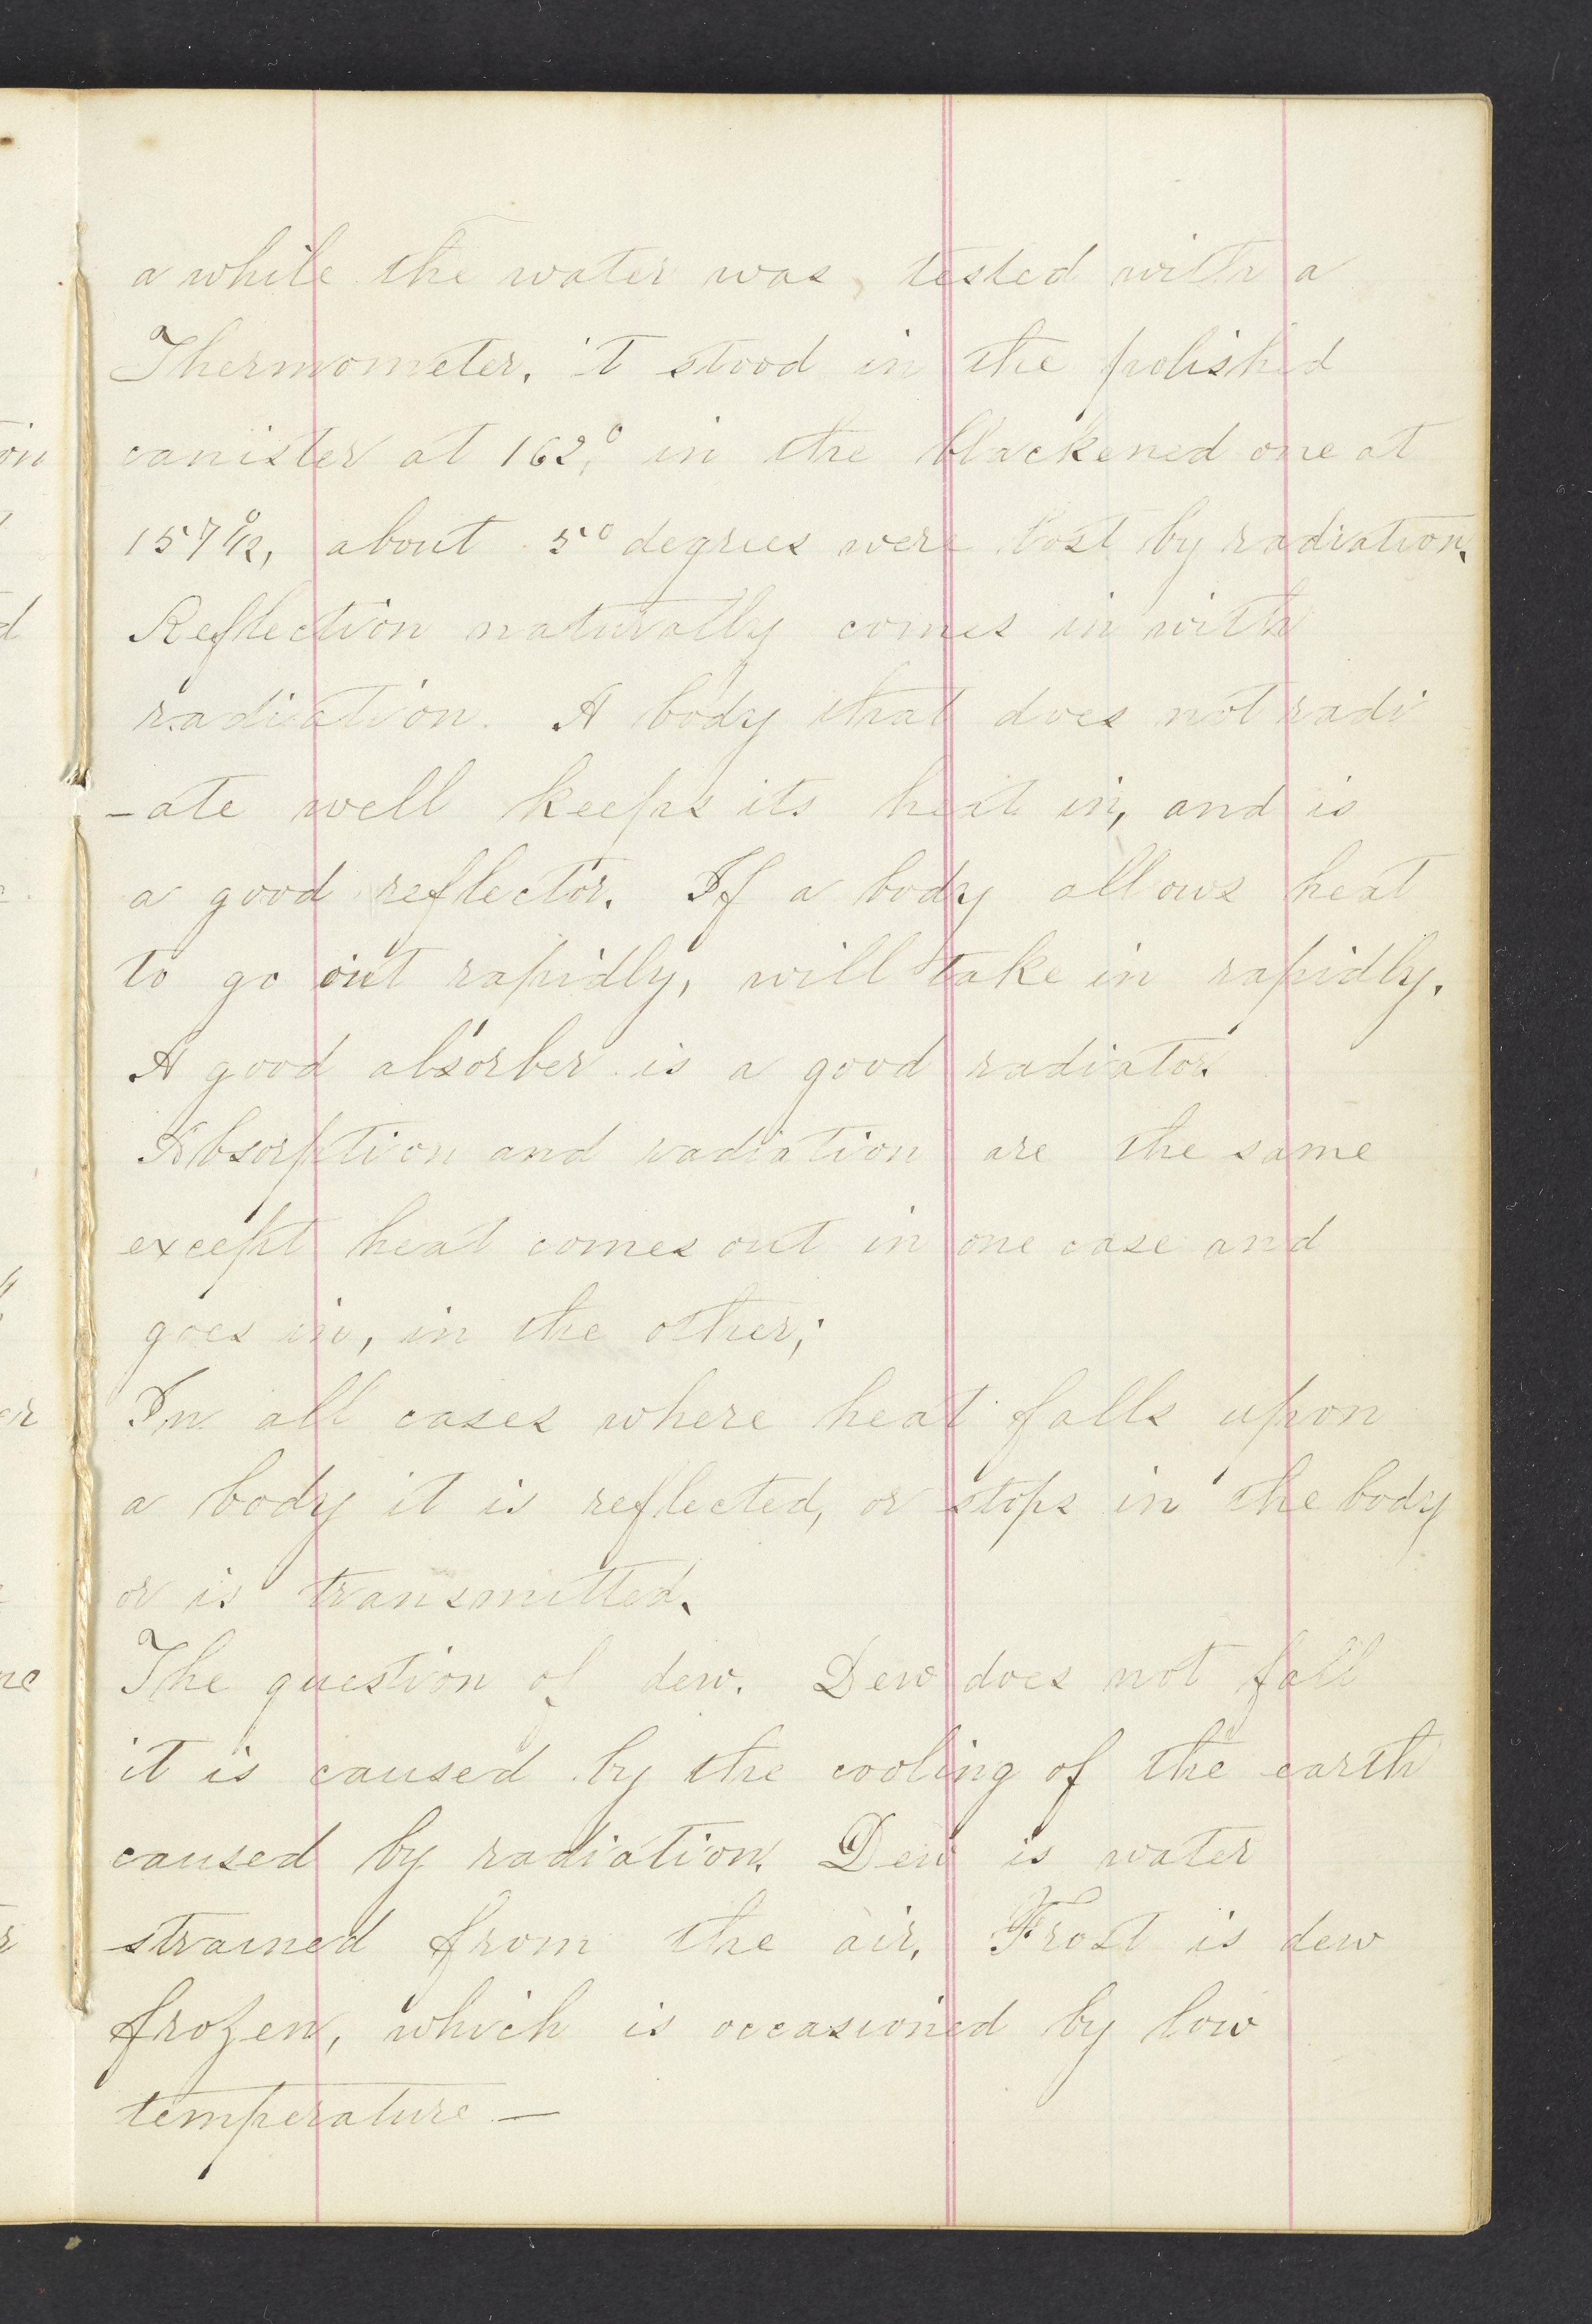 a while the water was, tested with a
Thermometer, it stood in the polished
canister at 162,° in the blackened one at
157°1/2, about 5° degrees were lost by radiation.
Reflection naturally comes in with
radiation. A body that does not radi
-ate well keeps its heat in, and is
a good reflector. If a body allows heat
to go out rapidly, will take in rapidly.
A good absorber is a good radiator.
Absorption and radiation are the same
except heat comes out in one case and
goes in, in the other;
In all cases where heat falls upon
a body it is reflected, or stops in the body
or is transmitted.
The question of dew. Dew does not fall
it is caused by the cooling of the earth
caused by radiation. Dew is water
strained from the air. Frost is dew
frozen, which is occasioned by low
temperature —